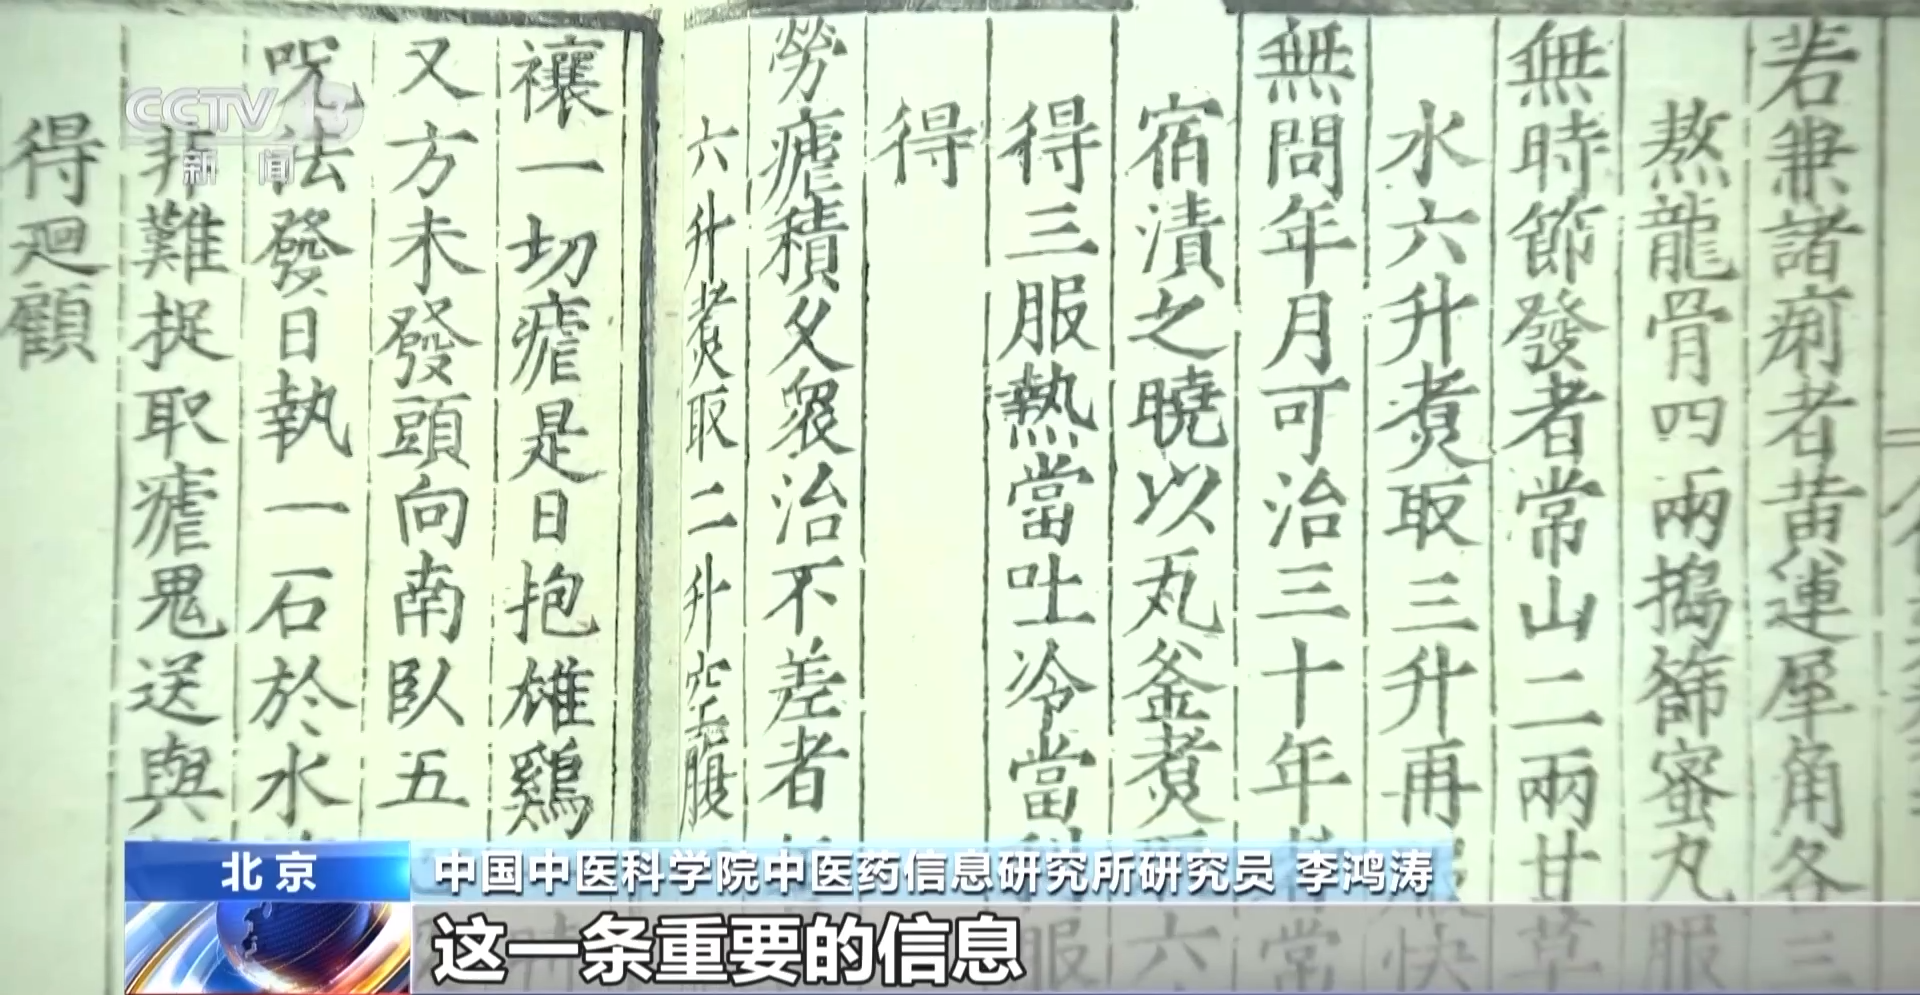 若兼諸痢者黃連犀角各三
熬龍骨四兩搗篩蜜丸服
無時節發者常山二兩甘草
水六升煮取三升再服快
無問年月可治三十年者常
宿漬之曉以瓦釜煮取六
得三服熱當吐冷當利服
得
勞瘧積久衆治不差者
六升煮取二升空腹
禳一切瘧是日抱雄鷄
又方未發頭向南臥五
呪法發日執一石於水
非難捉取瘧鬼送與
得迴顧
CCTV 13
新闻
北京
中国中医科学院中医药信息研究所研究员 李鸿涛
这一条重要的信息